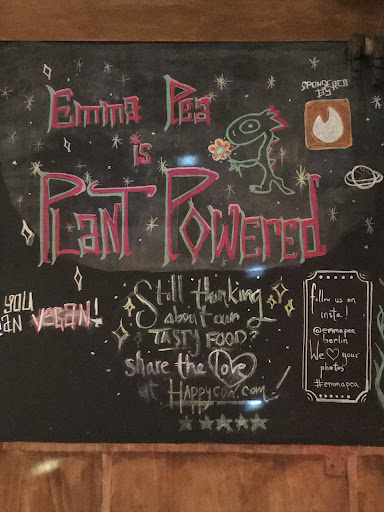 Emma Pea
is
PLANT POWERED
SPONSERED
BY
YOU
VEGAN!
Still thinking
about our
TASTY FOOD?
share the love
at HAPPYCOW.com!
follow us on
insta!
@emmapea
berlin
We ♡ your
photos
#emmapea